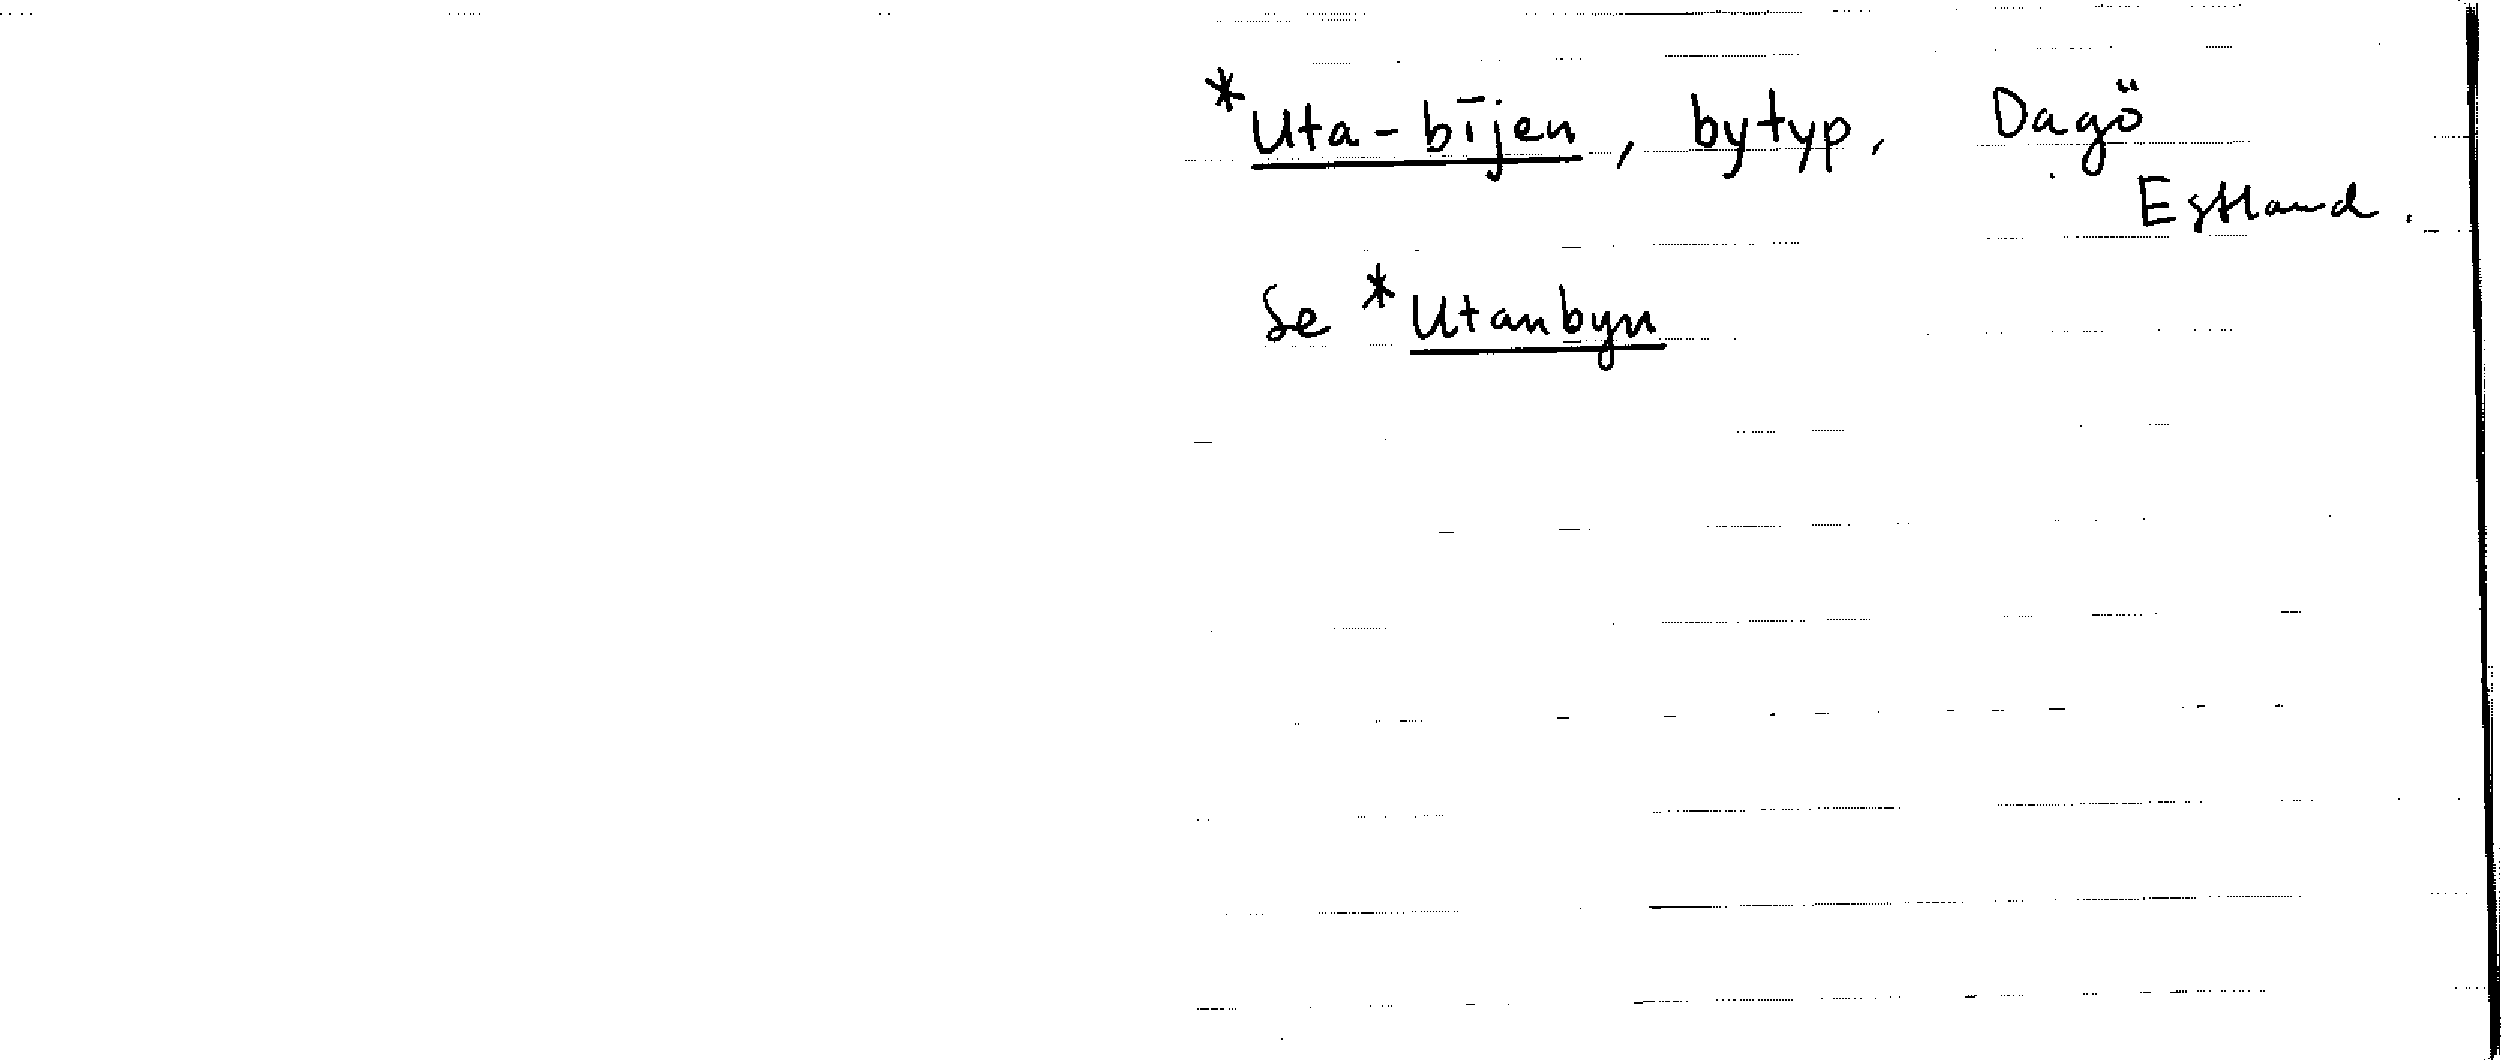 *Uta-bījen, bytyp, Dagö
Estland.
Se *Utanbyn